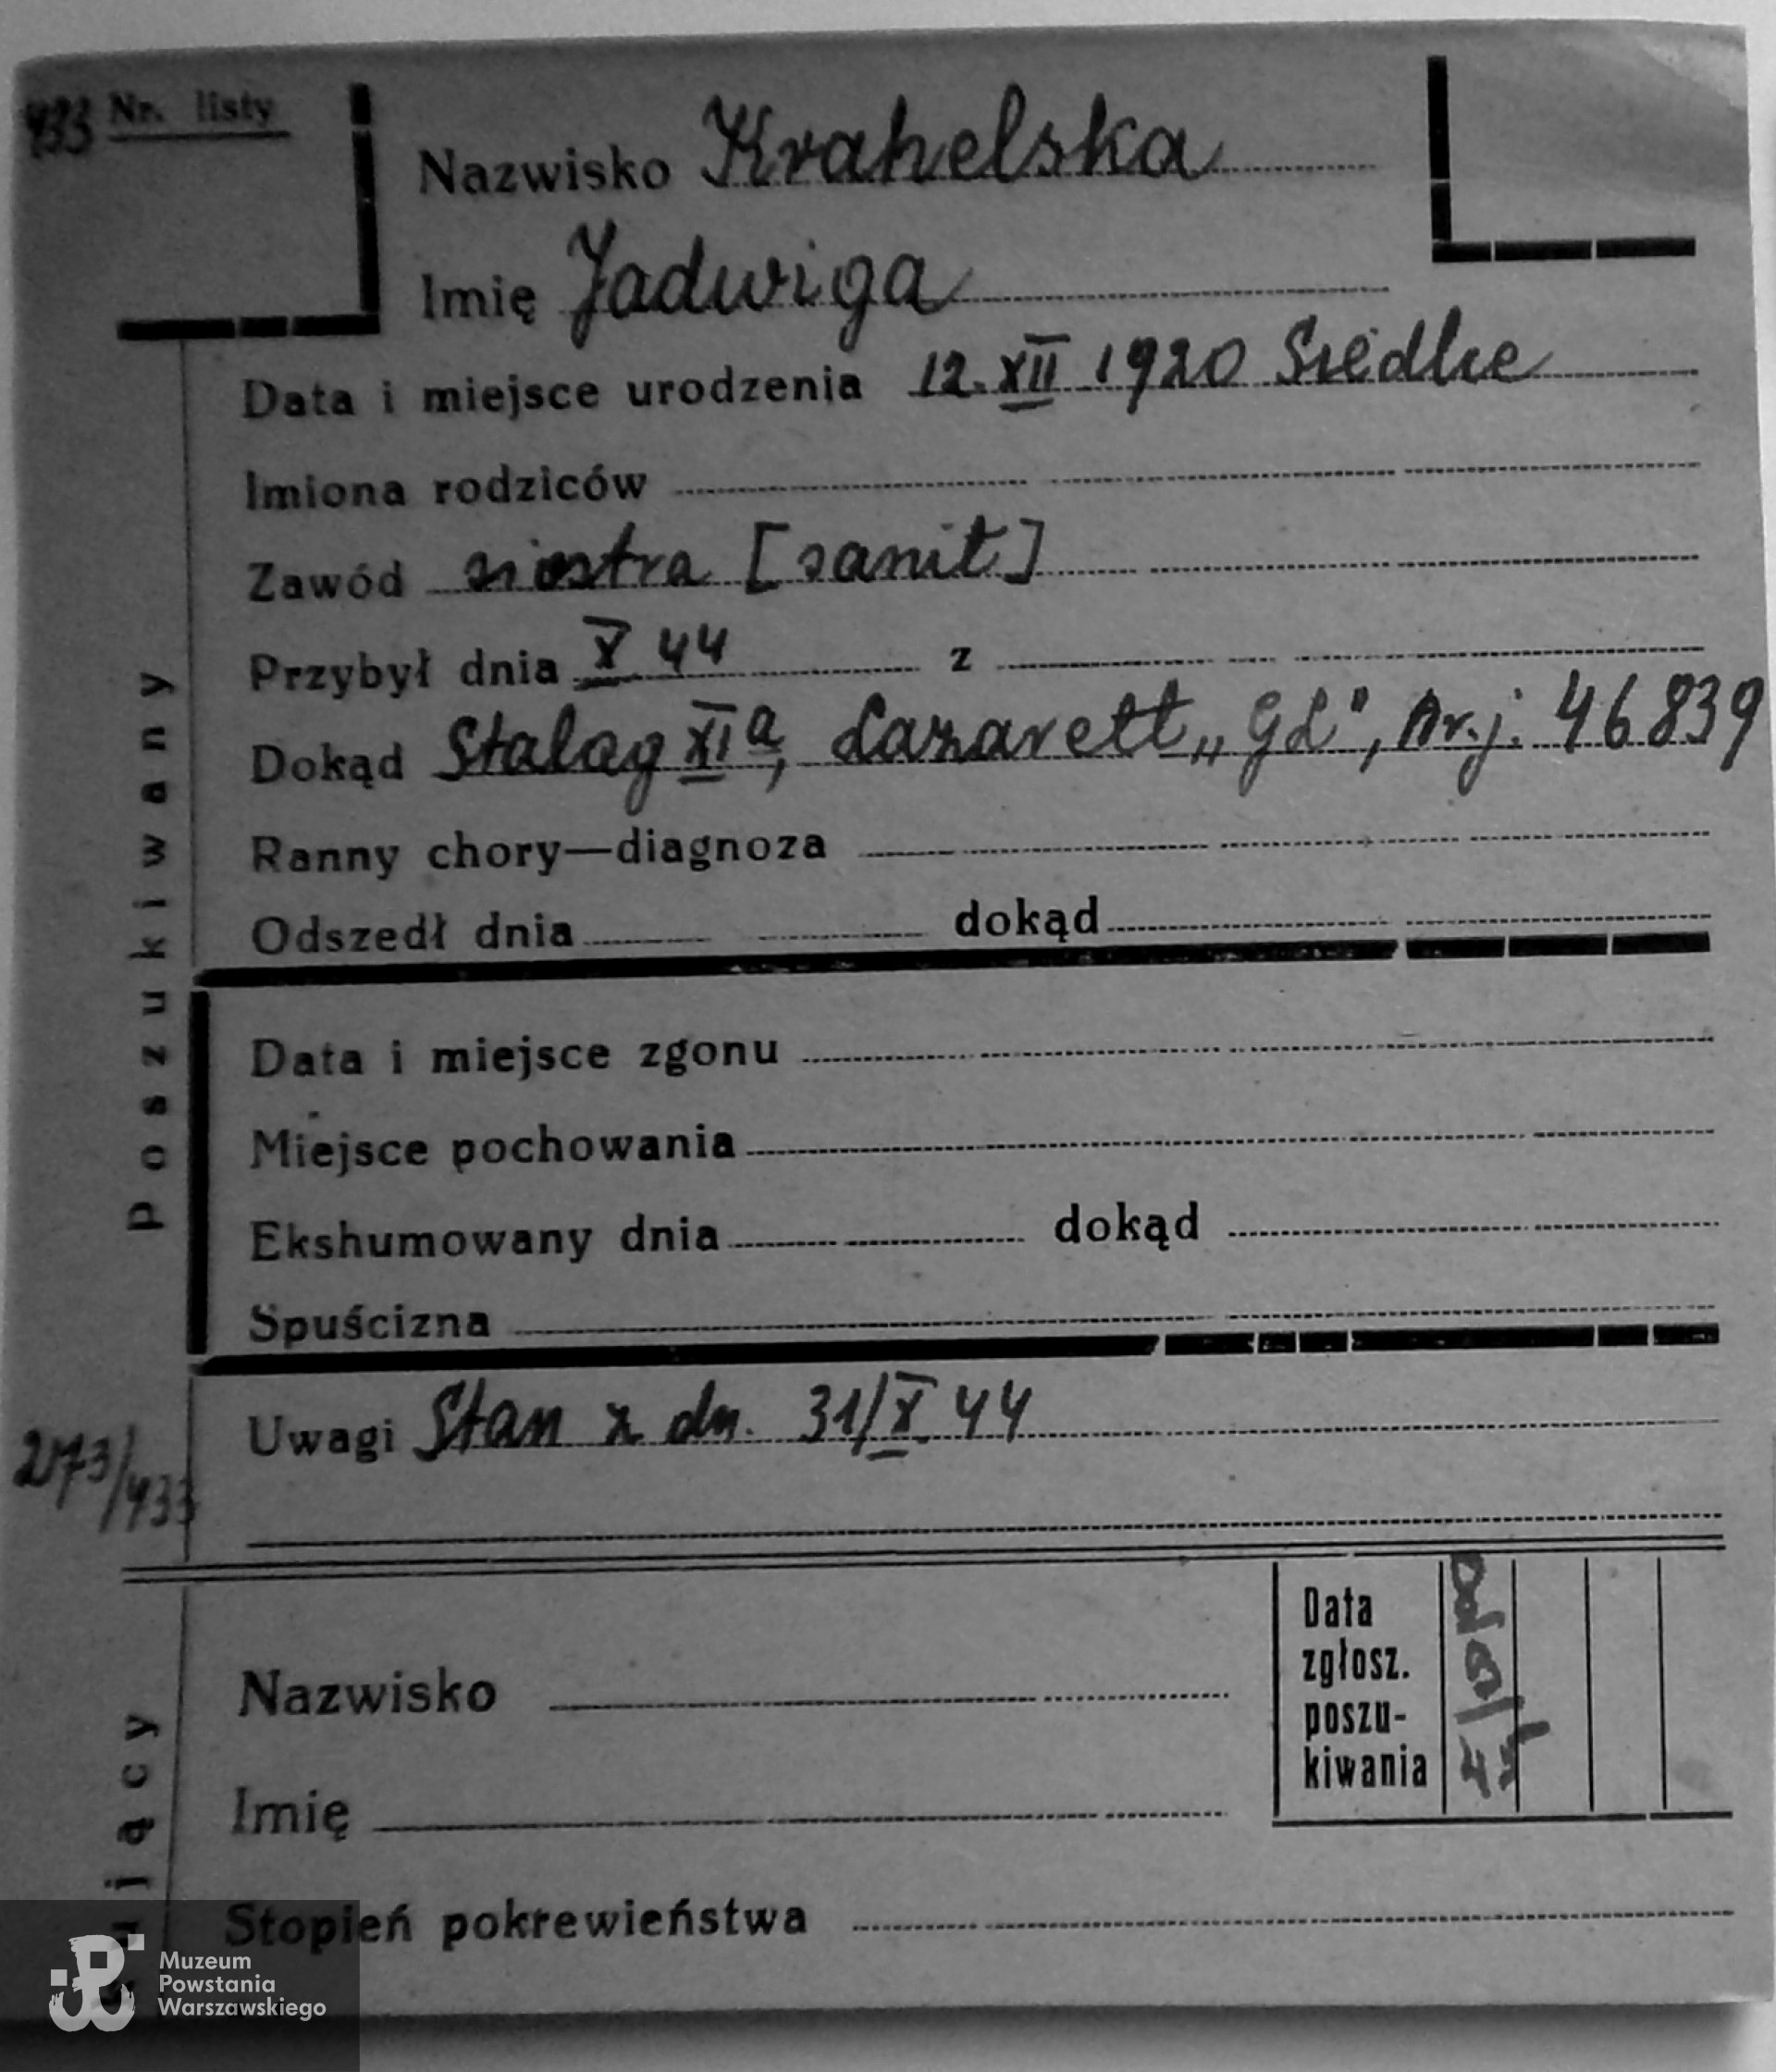 433 Nr. listy
Nazwisko Krahelska
Imię Jadwiga
Data i miejsce urodzenia 12.XII 1920 Siedlce
Imiona rodziców
Zawód siostra [sanit]
Przybył dnia X 44 z
Dokąd Stalag XIa, Lazarett „GL", Nr.j. 46839
Ranny chory—diagnoza
Odszedł dnia dokąd
Data i miejsce zgonu
Miejsce pochowania
Ekshumowany dnia dokąd
Spuścizna
Poszukiwany
Uwagi Stan z dn. 31/X 44
2173/433
Nazwisko
Imię
Stopień pokrewieństwa
Data
zgłosz.
poszu-
kiwania
45
Muzeum
Powstania
Warszawskiego